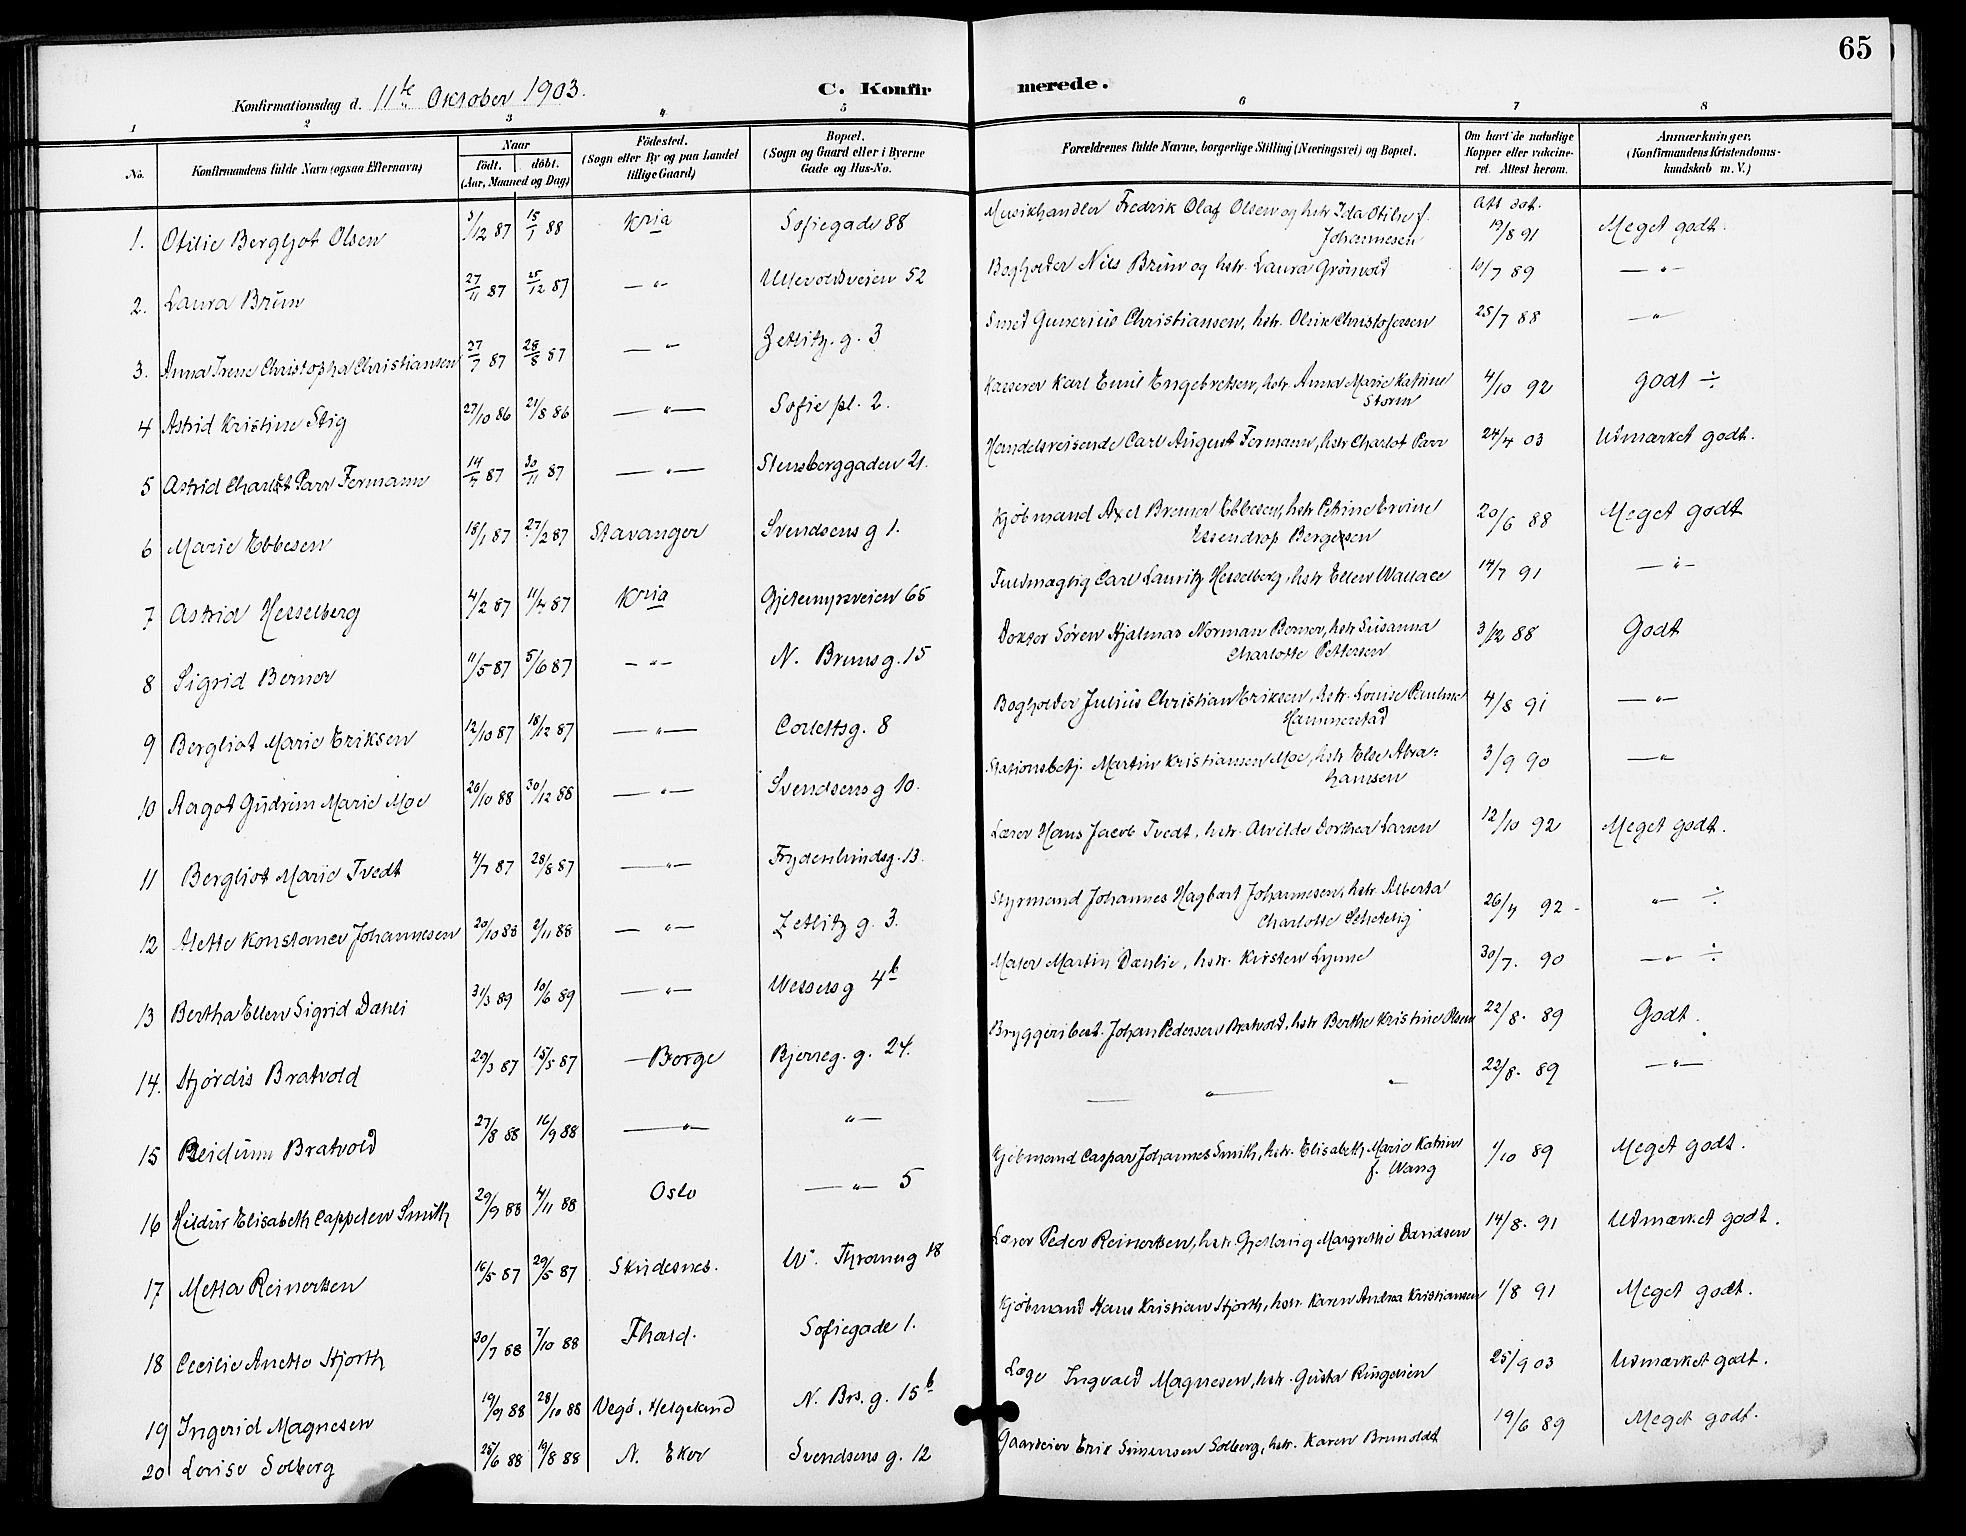 65
Konfirmationsdag d. 11te Oktober 1903.
C. Konfirmerede.
1 2 3 4 5 6 7 8
No. Konfirmandens fulde Navn (ogsaa Efternavn) Naar födt. döbt. (Aar, Maaned og Dag) Födested. (Sogn eller By og paa Landet tillige Gaard) Bopæl. (Sogn og Gaard eller i Byerne Gade og Hus-No. Forældrenes fulde Navne, borgerlige Stilling (Næringsvei) og Bopæl. Om havt de naturlige Kopper eller vakcineret. Attest herom. Anmærkninger. (Konfirmandens Kristendomskundskab m. V.)
1. Otilie Bergljot Olsen 3/12 87 15/1 88 Kria Sofiegade 88 Musikhandler Fredrik Olaf Olsen og hstr Ida Otilie f. Johannesen Att dat. 19/8 91 Meget godt.
2. Laura Brun 27/11 87 25/12 87 — " — Ullevoldsveien 52 Bogholder Nils Brun og hstr. Laura Grönvold 10/7 89 — " —
3. Anna Irene Christopha Christiansen 27/7 87 28/8 87 — " — Zetlitz. g. 3 Smed Gunerius Christiansen, hstr. Oline Christofersen 25/7 88 — " —
4 Astrid Kristine Stig 27/10 86 21/8 86 — " — Sofie pl. 2. Kasserer Karl Emil Engebretsen, hstr Anna Marie Katrine Storm 4/10 92 godt ÷
5 Astrid Charlot Parr Fermann 14/7 87 30/11 87 — " — Stensberggaden 21. Handelsreisende Carl August Fermann, hstr Charlot Parr 24/4 03 Udmærket godt.
6 Marie Ebbesen 18/1 87 27/2 87 Stavanger Svendsens g 1. Kjöbmand Axel Bremer Ebbesen, hstr Petrine Ervine Essendrop Bergesen 20/6 88 Meget godt
7 Astrid Hesselberg 4/2 87 11/4 87 Kria Gjetemyrsveien 65 Fuldmægtig Carl Lauritz Hesselberg, hstr Ellen Wallace 14/7 91 — " —
8 Sigrid Berner 11/5 87 5/6 87 — " — N. Bruns g. 15 Doktor Sören Hjalmar Norman Berner, hstr Susanna Charlotte Pettersen 3/12 88 Godt
9 Bergliot Marie Eriksen 12/10 87 18/12 87 — " — Corletts g. 8 Bogholder Julius Christian Eriksen, hstr. Louise Pauline Hammerstad 4/8 91 — " —
10 Aagot Gudrun Marie Moe 26/10 88 30/12 88 — " — Svendsens g 10. Stationsbetj. Martin Kristiansen Moe, hstr Else Abrahamsen 3/9 90 — " —
11 Bergliot Marie Tvedt 4/7 87 28/8 87 — " — Frydenlundsg. 13. Lærer Hans Jacob Tvedt, hstr. Alvilde Dorthea Larsen 12/10 92 Meget godt.
12 Alette Konstance Johannesen 20/10 88 2/11 88 — " — Zetlitz g. 3. Styrmand Johannes Hagbart Johannesen, hstr. Alberta Charlotte Schetelig 26/4 92 - — " — ÷
13 Bertha Ellen Sigrid Dæhli 31/3 89 10/6 89 — " — Wessels g 4b Maler Martin Dæhlie, hstr. Kirsten Lynne 30/7. 90 — " — ÷
14. Hjördis Bratvold 29/3 87 15/5 87 — Borge Bjerreg. g. 24. Bryggeribest. Johan Pedersen Bratvold, hstr Berthe Kristine Olsen 22/8. 89 Godt.
15 Reidunn Bratvold 27/8 88 16/9 88 — " — " — — " — " 22/8. 89 — " —
16 Hildur Elisabeth Cappelen Smith 29/9 88 4/11 88 Oslo — " — 5 Kjöbmand Caspar Johannes Smith, hstr. Elisabeth Marie Katrine f. Wang 1/10 89 Meget godt.
17 Metta Reinertsen 16/5 87 29/5 87 Skudesnes. W. Thranes g 18 Lærer Peder Reinertsen, hstr. Gjertorig Margrethe Davidsen 14/8. 91 Udmærket godt.
18 Cecilie Anette Hjorth 30/7 88 7/10 88 Fhald. Sofiegade 1. Kjöbmand Hans Kristian Hjorth, hstr. Karen Andrea Kristiansen 1/8 91 Meget godt.
19 Ingerid Magnesen 19/9 88 28/10 88 Vegö, Helgeland N. Brs. g. 15b Læge Ingvald Magnesen, hstr. Gusta Ringdien 25/9 03 Udmærket godt.
20 Lovise Solberg 25/6 88 19/8 88 N. Eker Svendsens g. 12 Gaardeier Erik Simensen Solberg, hstr. Karen Brunoldt 19/6 89 Meget godt.